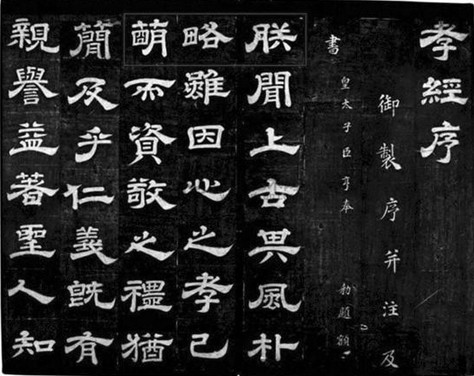 孝經序
御製序并注及
書
皇太子臣亨奉 勑題額
朕聞上古其風朴
略雖因心之孝已
萌而資敬之禮猶
簡及乎仁義既有
親譽益著聖人知